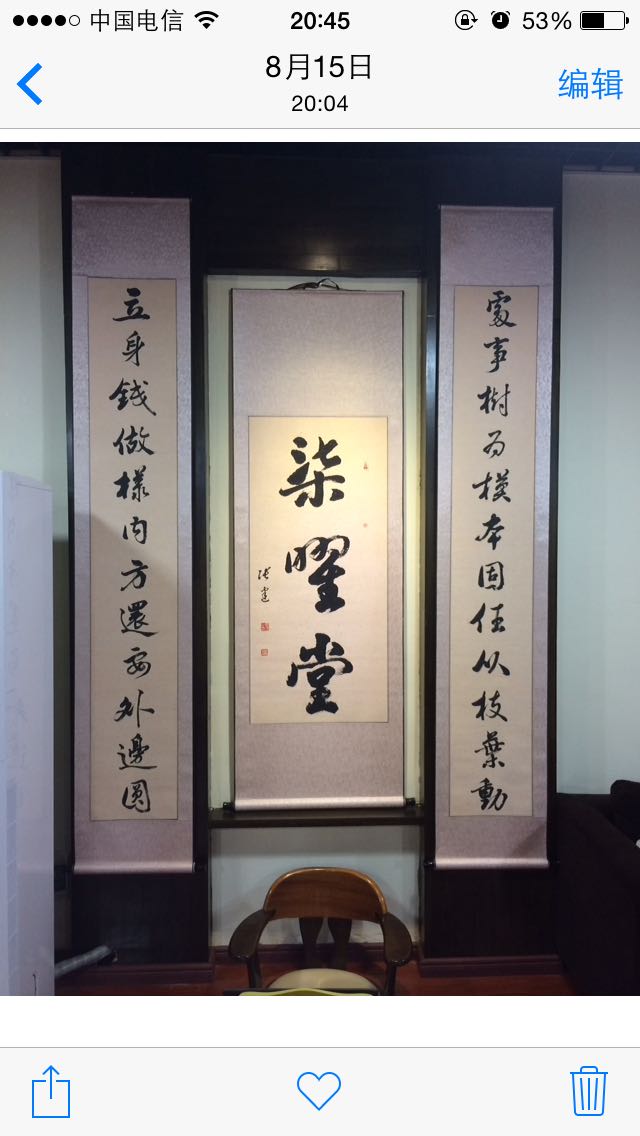 中国电信 20:45 53%
8月15日
20:04
编辑
處事樹为模本固任从枝葉動
柒曜堂
立身錢做樣内方還要外邊圓